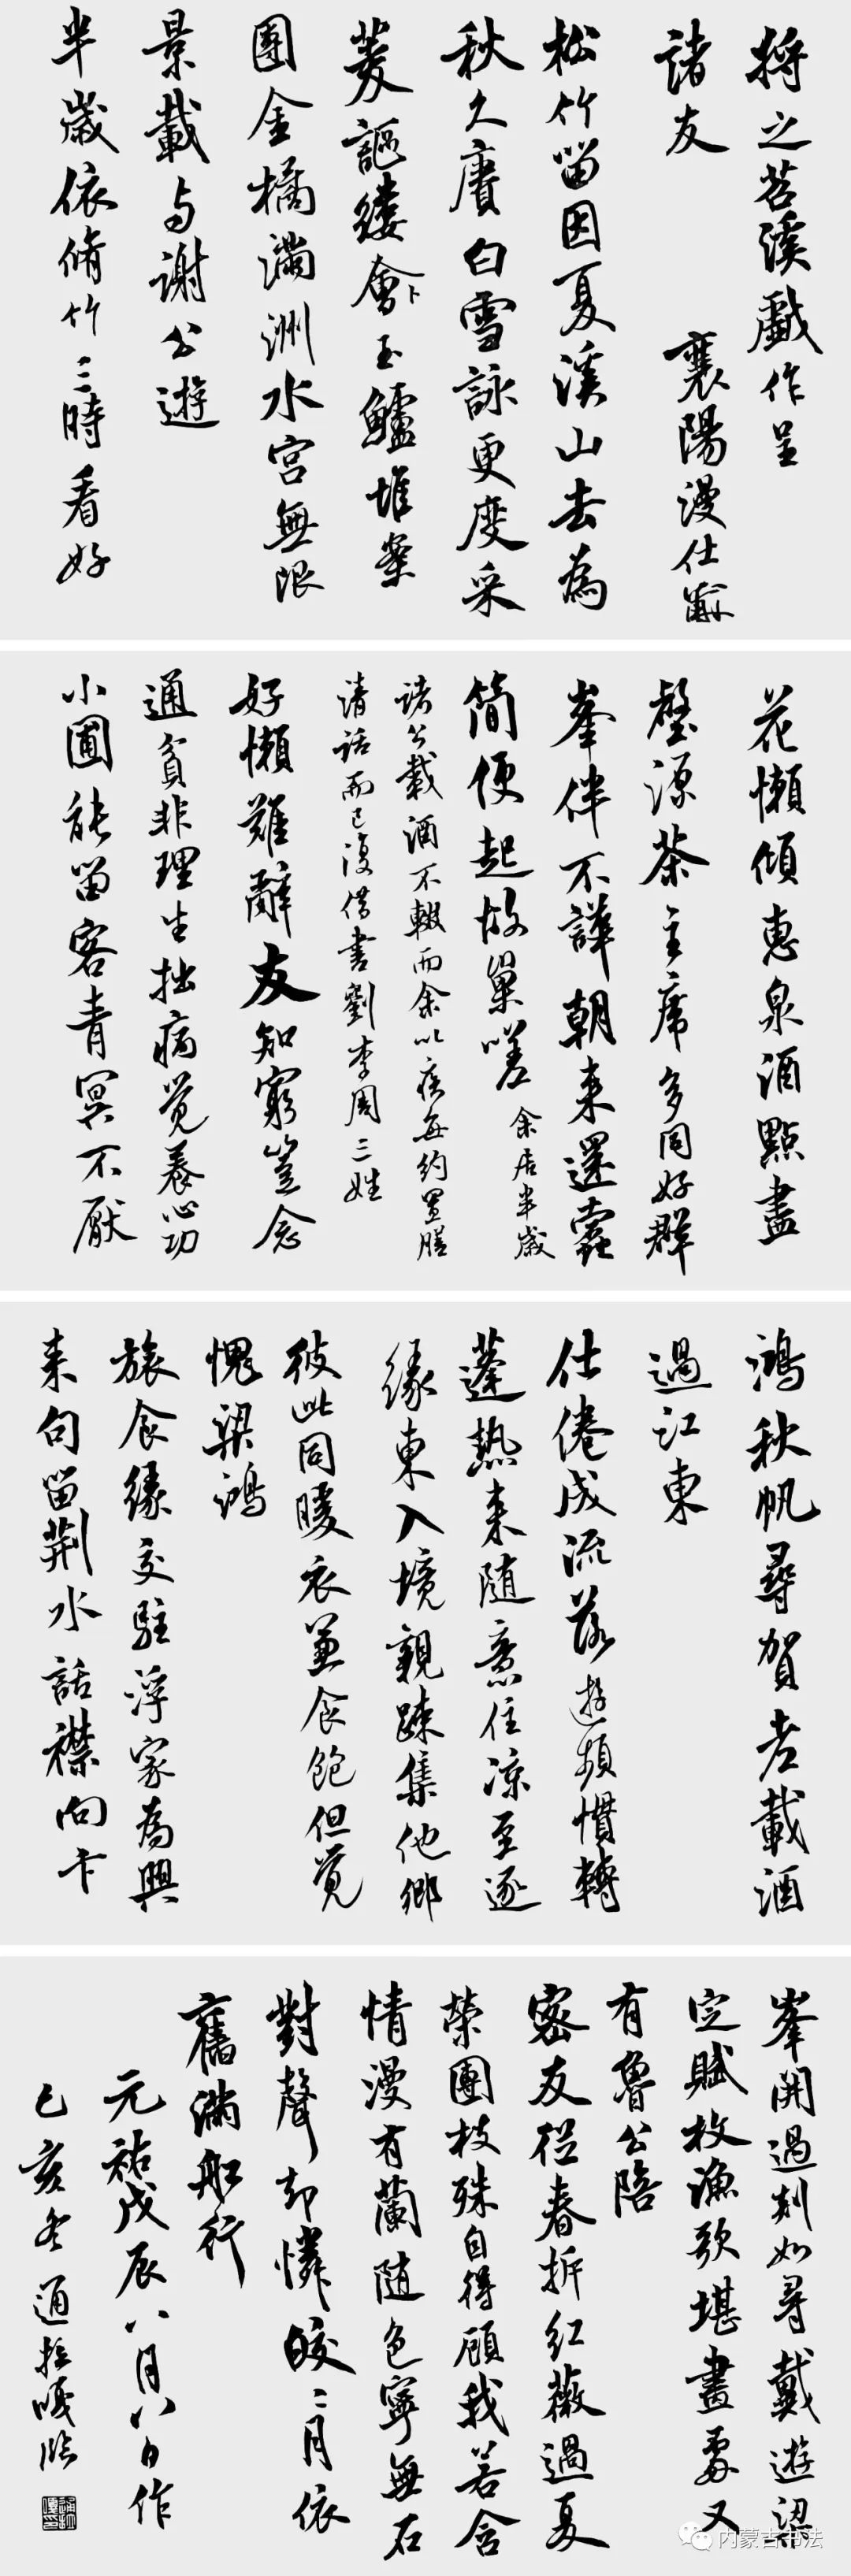 将之苕溪戲作呈
諸友 襄陽漫仕黻
松竹留因夏溪山去為
秋久賡白雪詠更度采
菱謳縷會卜玉鱸堆案
團金橘滿洲水宮無限
景載与謝公遊
半歲依脩竹三時看好
花懶傾惠泉酒點盡
壑源茶主席多同好群
峯伴不譁朝来還蠹
簡便起故巢嗟 余居半歲
諸公載酒不輟而余以疾每約置膳
清話而已復借書劉李周三姓
好懶難辭友知窮豈念
通貧非理生拙病覺養心功
小圃能留客青冥不厭
鴻秋帆尋賀老載酒
過江東
仕倦成流落遊頻慣轉
蓬熱来随意住凉至逐
緣東入境親踈集他鄉
彼此同暖衣兼食飽但覺
愧梁鴻
旅食緣交駐浮家為興
来句留荆水話襟向卞
峯開過剡如尋戴遊梁
定賦枚漁歌堪畫處又
有魯公陪
密友從春拆紅薇過夏
榮團枝殊自得顧我若含
情漫有蘭随色寧無石
對聲却憐皎二月依
舊滿船行
元祐戊辰八月八日作
己亥冬通拉嘎臨
内蒙古书法